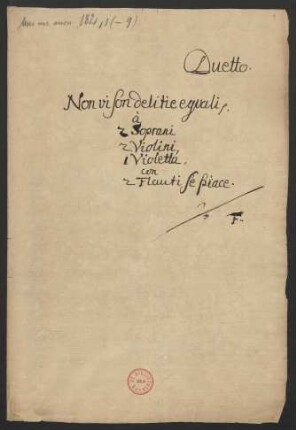 Mus. ms. anon. 1821,1 (-9)
Duetto.
Non vi son delitie eguali,
à
2 Soprani
2 Violini,
1 Violetta.
con
2 Flauti se piace.
F.